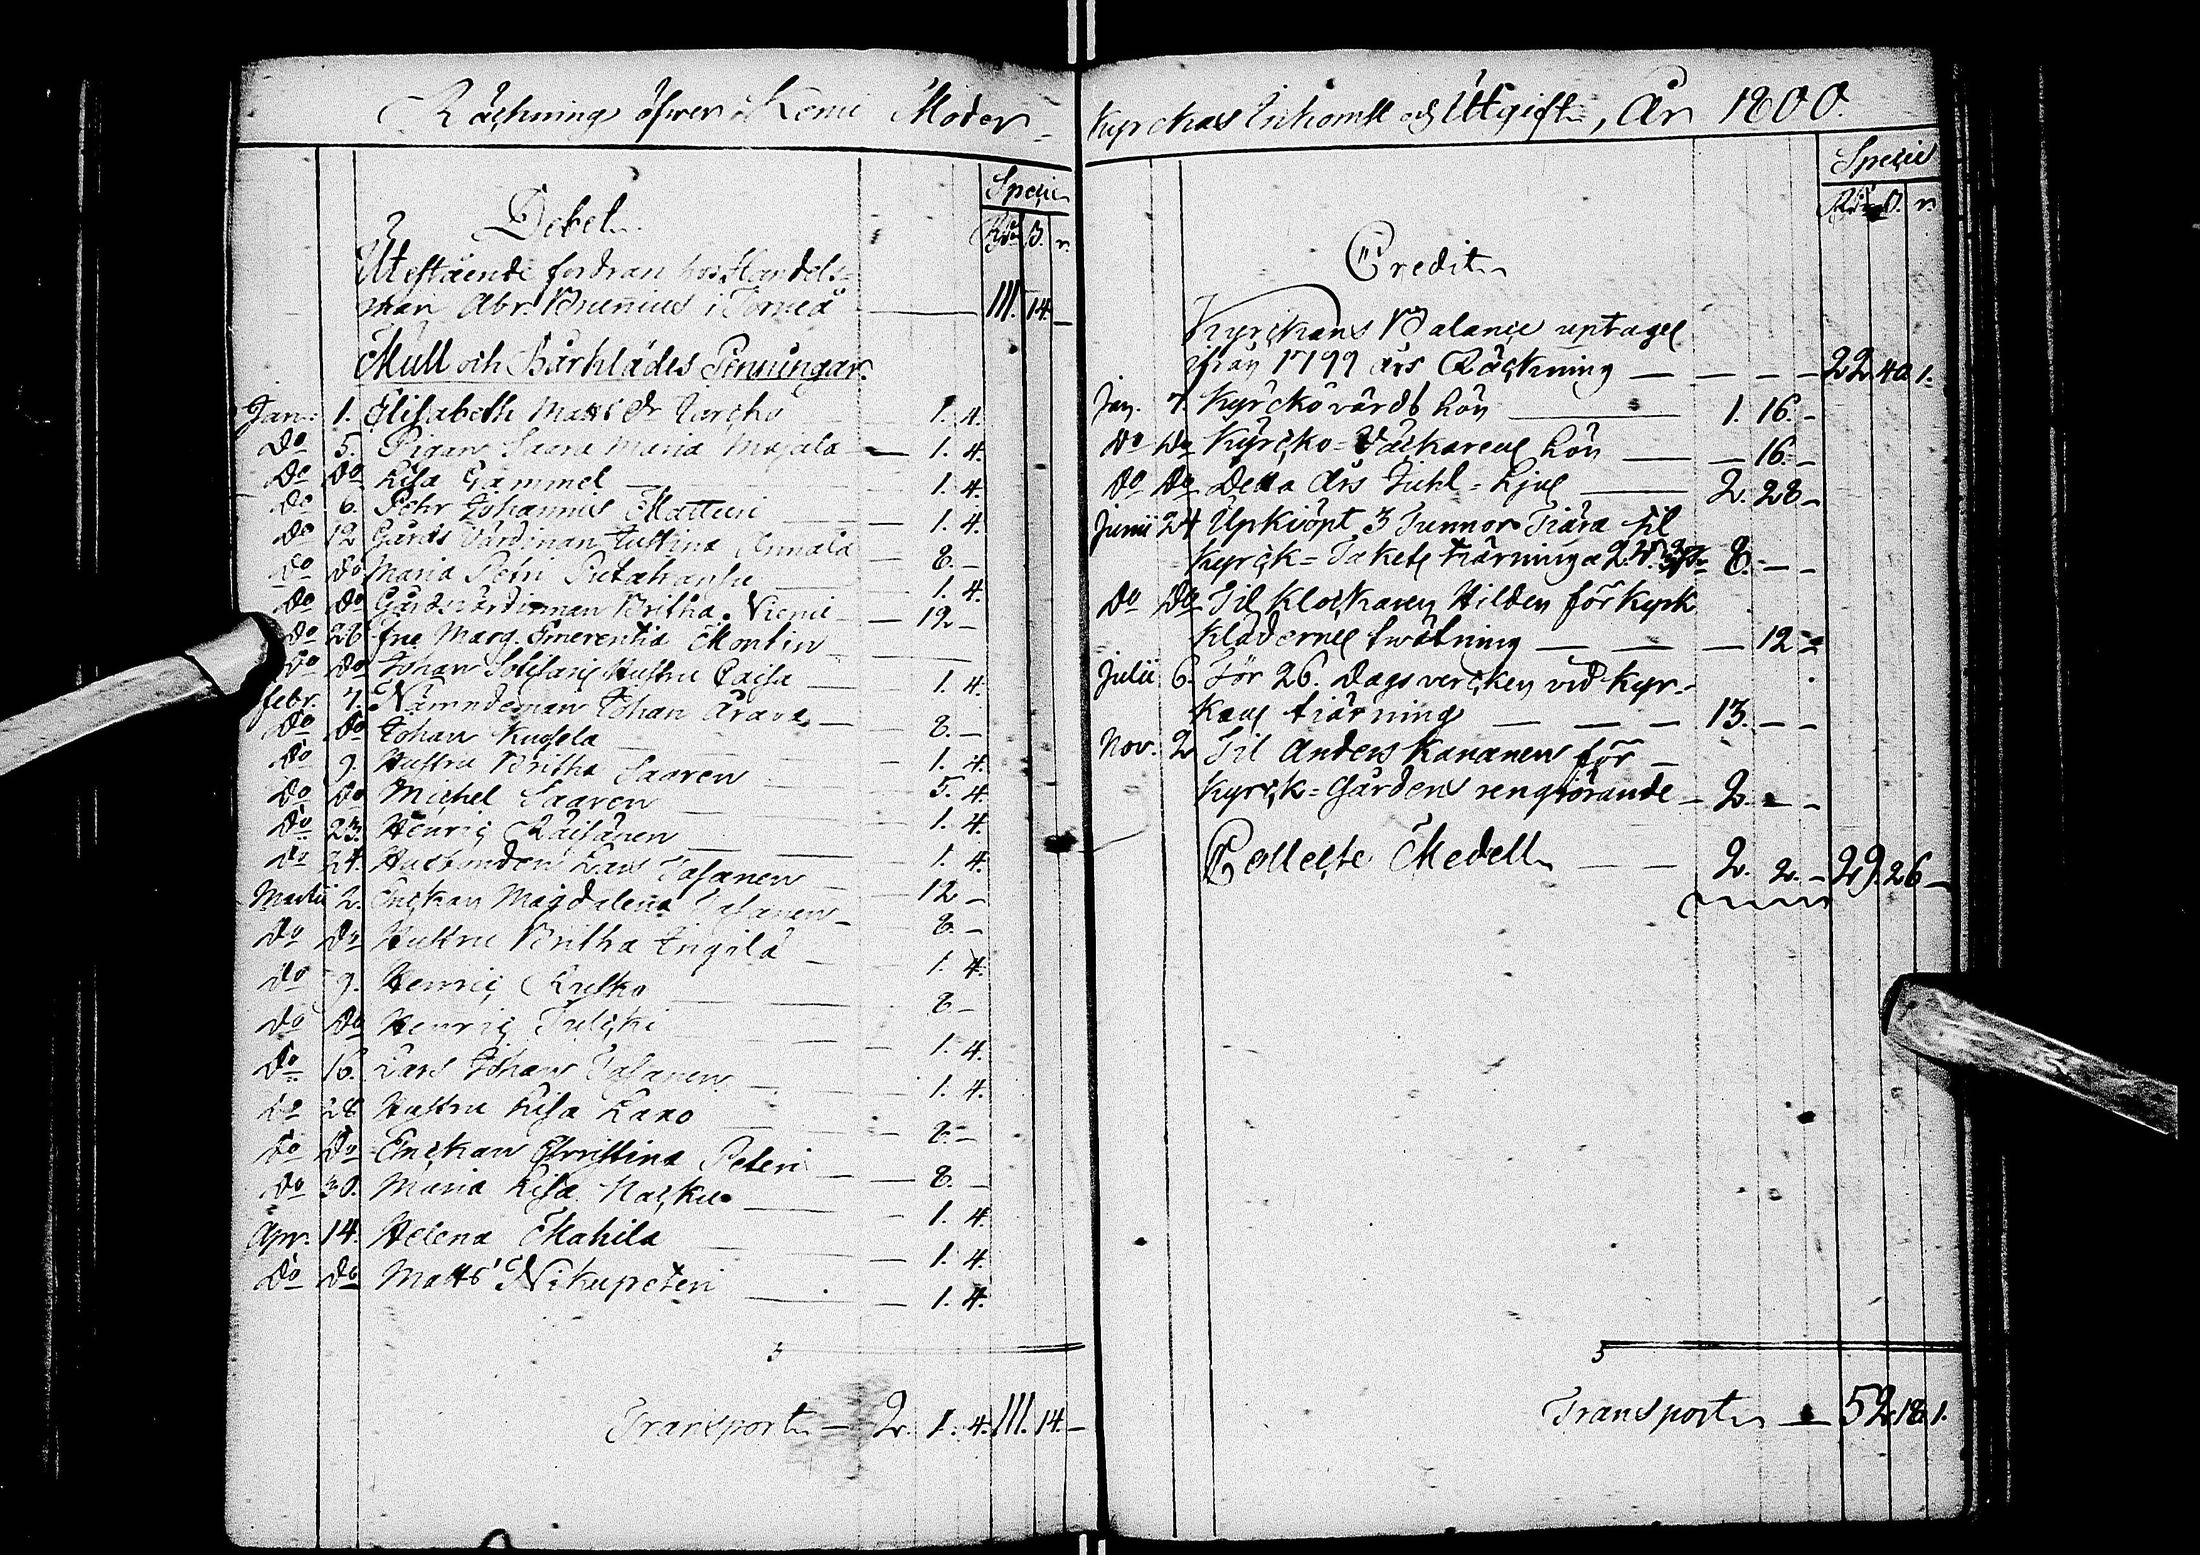 Räckning öfwer Kemi Moder-
Debet
Specie
Rdr ß. r.
Utestående fordran hos Handels-
man Abr. Brunius i Torneå — 111. 14. —
Mull och Bårklädes Penningar.
Jan. 1. Elisabeth Matts dr — 1. 4.
Do 5. Pigan Saara Maria Majala — 1. 4.
Do Do Lisa Gammel — 1. 4.
Do 6. Pehr Johannis Matturi — 1. 4.
Do 12 Gårds Värdinnan Justina Annala — 8. —
Do Do Maria Petri — 1. 4.
Do Do Gårdsvärdinnan Britha Niemi — 12 —
Do 26 fru Marg. Emerentia Montin —
Do Do Johan Hustru Caisa — 1. 4.
Febr. 7. Nämndeman Johan Arava — 8. —
Do Do Johan Kusela — 1. 4.
Do 9. Hustru Britha Saaren — 5. 4.
Do Do Michel Saaren — 1. 4.
Do 23. Henric Räisänen — 1. 4.
Do 24. Husbonden Lars Tasanen — 12 —
Martii 2. Enckan Magdalena Tasanen — 8. —
Do Do Hustru Britha Jngilä — 1. 4.
Do 9. Henric Rusko — 8 —
Do Do Henric — 1. 4.
Do 16. Lars Johan Tasanen — 1. 4.
Do 28 Hustru Lisa — 8. —
Do Do Enckan Christina Peteri — 8. —
Do 30. Maria Lisa — 1. 4.
Apr. 14. Helena Mahila — 1. 4.
Do Do Matts Nikupeteri — 1. 4.
Transport — 2. 1. 4. 111. 14. —
Kyrckas Inkomst och Utgift, År 1800.
Specie
Rdr ß. r.
Credit
Kyrckans Balance uptagen
ifrån 1799 års Räckning — 22. 40. 1.
Jan. 7. Kyrckovärds lön — 1. 16. —
Do Do Kyrcko-Väckarens lön — 16. —
Do Do Detta års Juhl-Ljus — 2. 28 —
Junii 24 Upkiöpt 3 Tunnor Tiära til
Kyrck-Takets tiärning 8. — —
Do Do Til klockaren Hilden för kyrk
Klädernes twätning — 12 —
Julii 6. För 26. Dagsvercken vid kyr-
kans tiärning — 13. — —
Nov. 2 Til Anders Kananen för —
Kyrck-Gårdens rengiörande — 2. — —
Collecte Medell — 2. 2. — 29. 26 —
Transport — 52. 18. 1.